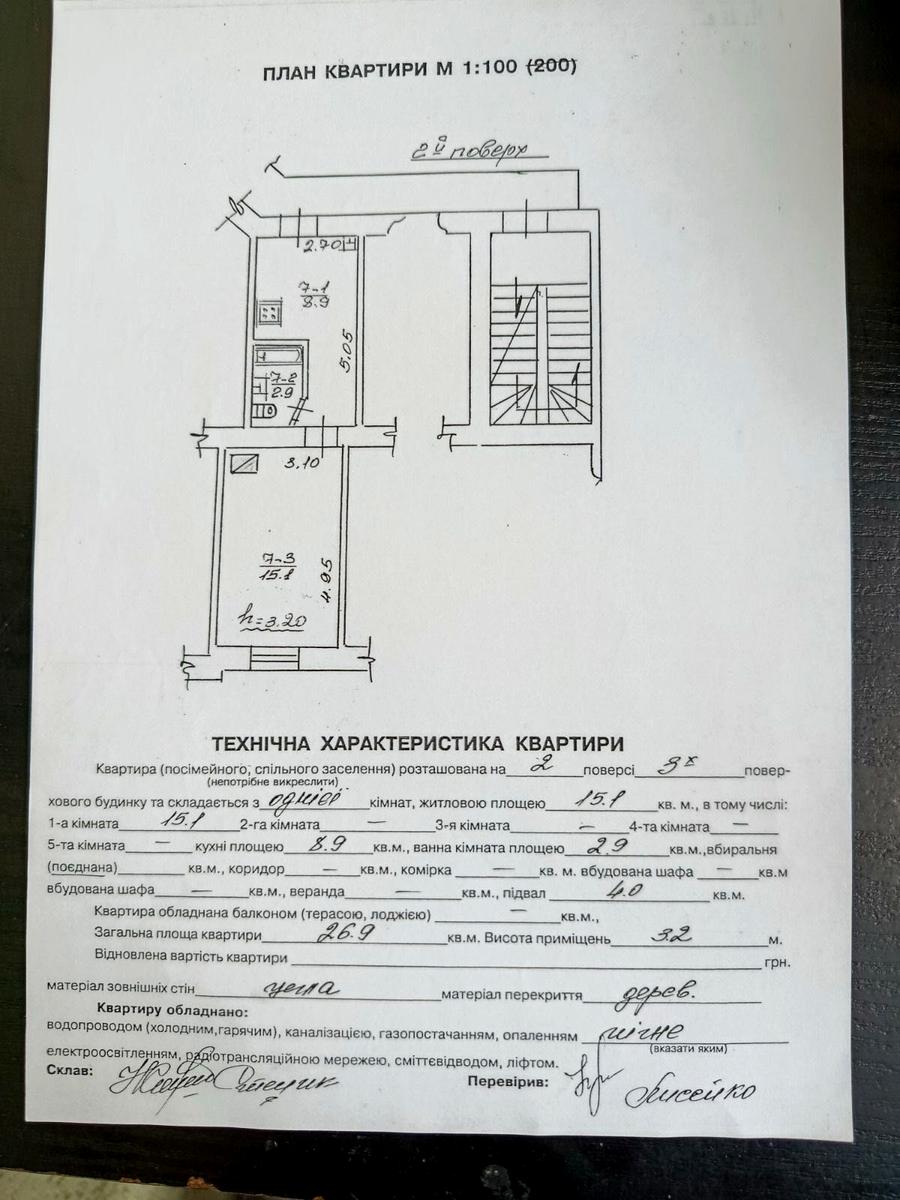 ПЛАН КВАРТИРИ М 1:100 (200)
2й поверх
2.70
7-1
8.9
5.05
7-2
2.9
3.10
7-3
15.1
4.95
h=3.20
ТЕХНІЧНА ХАРАКТЕРИСТИКА КВАРТИРИ
Квартира (посімейного, спільного заселення) розташована на 2 поверсі 3х повер-
(непотрібне викреслити)
хового будинку та складається з однієї кімнат, житловою площею 15.1 кв. м., в тому числі:
1-а кімната 15.1 2-га кімната — 3-я кімната — 4-та кімната —
5-та кімната — кухні площею 8.9 кв.м., ванна кімната площею 2.9 кв.м.,вбиральня
(поєднана) кв.м., коридор — кв.м., комірка — кв. м. вбудована шафа — кв.м
вбудована шафа — кв.м., веранда — кв.м., підвал 4.0 кв.м.
Квартира обладнана балконом (терасою, лоджією) — кв.м.,
Загальна площа квартири 26.9 кв.м. Висота приміщень 3.2 м.
Відновлена вартість квартири грн.
матеріал зовнішніх стін цегла матеріал перекриття дерев.
Квартиру обладнано:
водопроводом (холодним,гарячим), каналізацією, газопостачанням, опаленням пічне
(вказати яким)
електроосвітленням, радіотрансляційною мережею, сміттєвідводом, ліфтом.
Склав: Перевірив: